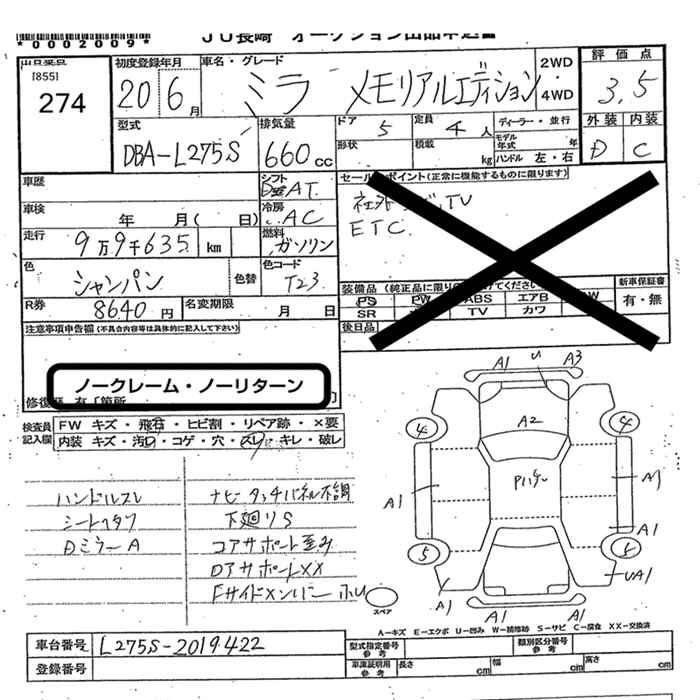 JU長崎 オークション出品申込書
*0002009*
出品受点
[855]
274
初度登録年月
20 6月
車名・グレード
ミラ メモリアルエディション
2WD
4WD
評価点
3.5
外装 内装
D C
型式
DBA-L275S
排気量
660cc
ドア 5
定員 4人
形状
積載 kg
ディーラー・並行
モデル年式 年
ハンドル 左・右
車歴
シフト
AT
セールスポイント(正常に機能するものに限ります)
社外 TV
ETC
車検 年 月( 日)
冷房
AC
走行 9万9千635 km
燃料
ガソリン
色 シャンパン
色替
色コード
T23
装備品(純正品に限り けてください)
PS PW ABS エアB W
SR TV カワ
新車保証書
有・無
後日品
R券 8640円
名変期限 月 日
注意事項申告欄(不具合内容等は具体的に記入して下さい)
ノークレーム・ノーリターン
修復歴 有「箇所 」
検査員記入欄
FW キズ・飛石・ヒビ割・リペア跡・×要
内装 キズ・汚レ・コゲ・穴・スレ・キレ・破レ
ハンドルスレ
シートヘタリ
Dミラー A
ナビータッチパネル不調
下廻りS
コアサポート歪み
DアサポートXX
Fサイドメンバー ホU
スペア
A1 U A3
4 A2 4
Pハゲ
A1 A1
A1
5 5
UA1
A1 A1 A1
A-キズ E-エクボ U-凹み W-補修跡 S-サビ C-腐食 XX-交換済
車台番号 L275S-2019422
登録番号
型式指定番号
参考
類別区分番号
参考
車庫証明用
参考
長さ cm
幅 cm
高さ cm